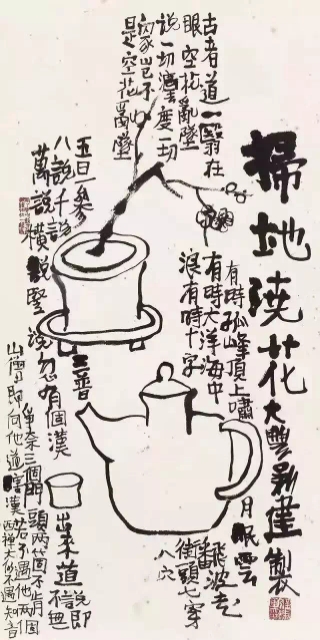 掃地澆花
大豐新建製
古者道一翳在
眼空花亂墜
說一切法度一切
豈不
是空花亂墜
有時孤峰頂上嘯
月眠雲
有時大洋海中
翻波走
浪有時十字
街頭七穿
八穴
五日一參
八說千說
萬說橫說豎說忽有個漢
出來道說即不無
爭奈三個門頭兩箇不肯
山僧即向他道瞎漢若不遇他兩個
西禪大似不遇知音